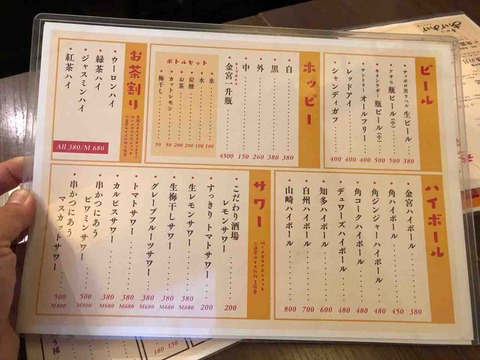 ビール
サッポロ黒ラベル 生ビール 380
アサヒ瓶ビール(中) 500
瓶ビール(中) 500
サントリーオールフリー 400
レッドアイ 400
シャンディガフ 400
ホッピー
白 380
黒 380
外 260
中 150
金宮一升瓶 4500
ボトルセット
氷 100
水 100
炭酸 200
お茶 200
カットレモン 50
梅干し 50
お茶割り
ウーロンハイ
緑茶ハイ
ジャスミンハイ
紅茶ハイ
All 380/M 680
ハイボール
金宮ハイボール 380
角ハイボール 450
角ジンジャーハイボール 480
角コークハイボール 480
デュワーズハイボール 480
知多ハイボール 600
白州ハイボール 700
山崎ハイボール 800
サワー
こだわり酒場の
レモンサワー 200
すっきりトマトサワー 200
生レモンサワー 380 M680
生梅干しサワー 380 M680
グレープフルーツサワー 380 M680
トマトサワー 380 M680
カルピスサワー 380 M680
串かつにあう
ビタミンサワー 380 M680
串かつにあう
マスカットサワー 500 M800